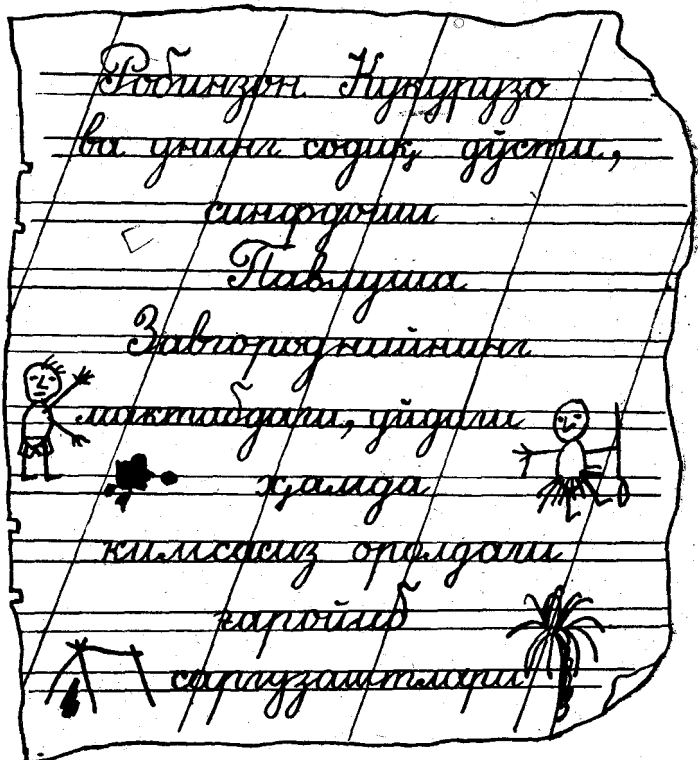 Робинзон Кукурузо
ва унинг содиқ дўсти,
синфдоши
Павлуша
Завгороднийнинг
мактабдаги, уйдаги
ҳамда
кимсасиз оролдаги
ғаройиб
саргузаштлари